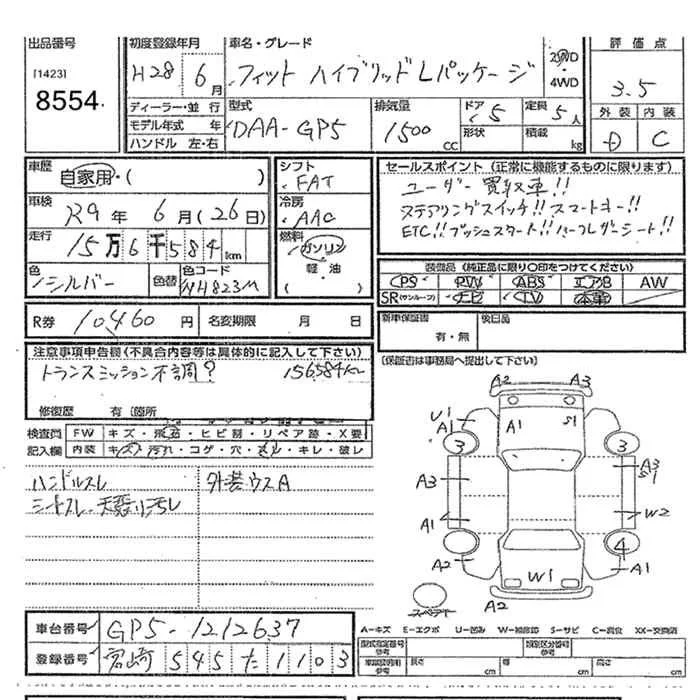 出品番号 初度登録年月 車名・グレード 評価点
[1423] H28年 6月 フィット ハイブリッド Lパッケージ 2WD・4WD 3.5
8554 ディーラー・並行 型式 排気量 ドア 5 定員 5人 外装 内装
モデル年式 年 DAA-GP5 1500cc 形状 積載 kg D C
ハンドル 左・右
車歴 自家用・( ) シフト FAT セールスポイント(正常に機能するものに限ります)
車検 R9年 6月(26日) 冷房 AAC ユーザー買取車!!
ステアリングスイッチ!! スマートキー!!
走行 15万6千584km 燃料 ガソリン ETC!! プッシュスタート!! ハーフレザーシート!!
軽・油
色 シルバー 色替 色コード NH823M 装備品(純正品に限り○印をつけてください)
PS PW ABS エアB AW
SR(サンルーフ) ナビ TV 本革
R券 10,460円 名変期限 月 日 新車保証書 有・無 後日品
注意事項申告欄(不具合内容等は具体的に記入して下さい) (保証書は事務局へ提出して下さい)
トランスミッション不調? 156,584km
修復歴 有(箇所
検査員 FW キズ・飛石・ヒビ割・リペア跡・X要
記入欄 内装 キズ・汚れ・コゲ・穴・スレ・キレ・破レ
ハンドルスレ 外装ウスA
シートスレ・天張り汚レ
A2 A3
U1 A1 A1 S1
3 3
A3 A3 S1
A1 W2
A2 W1 4 A1
スペアT A2
車台番号 GP5-1212637 A-キズ E-エクボ U-凹み W-補修跡 S-サビ C-腐食 XX-交換済
登録番号 宮崎 545 た 1103 型式指定番号 参考 類別区分番号 参考
車庫証明用 参考 長さ cm 幅 cm 高さ cm